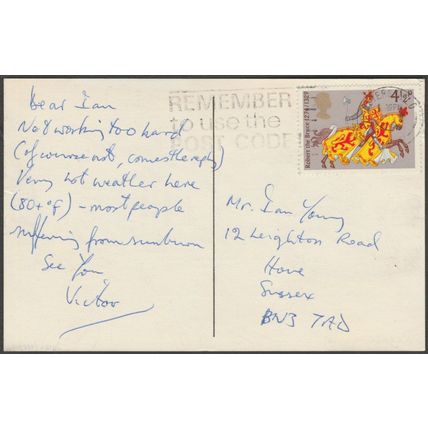 Dear Ian
Not working too hard
(of course not, comes the reply)
Very hot weather here
(80+°F) - most people
suffering from sunburn
See You
Victor
REMEMBER
to use the
POST CODE
4½p
Robert the Bruce 1274-1329
Mr. Ian Young
12 Leighton Road
Hove
Sussex
BN3 7AD